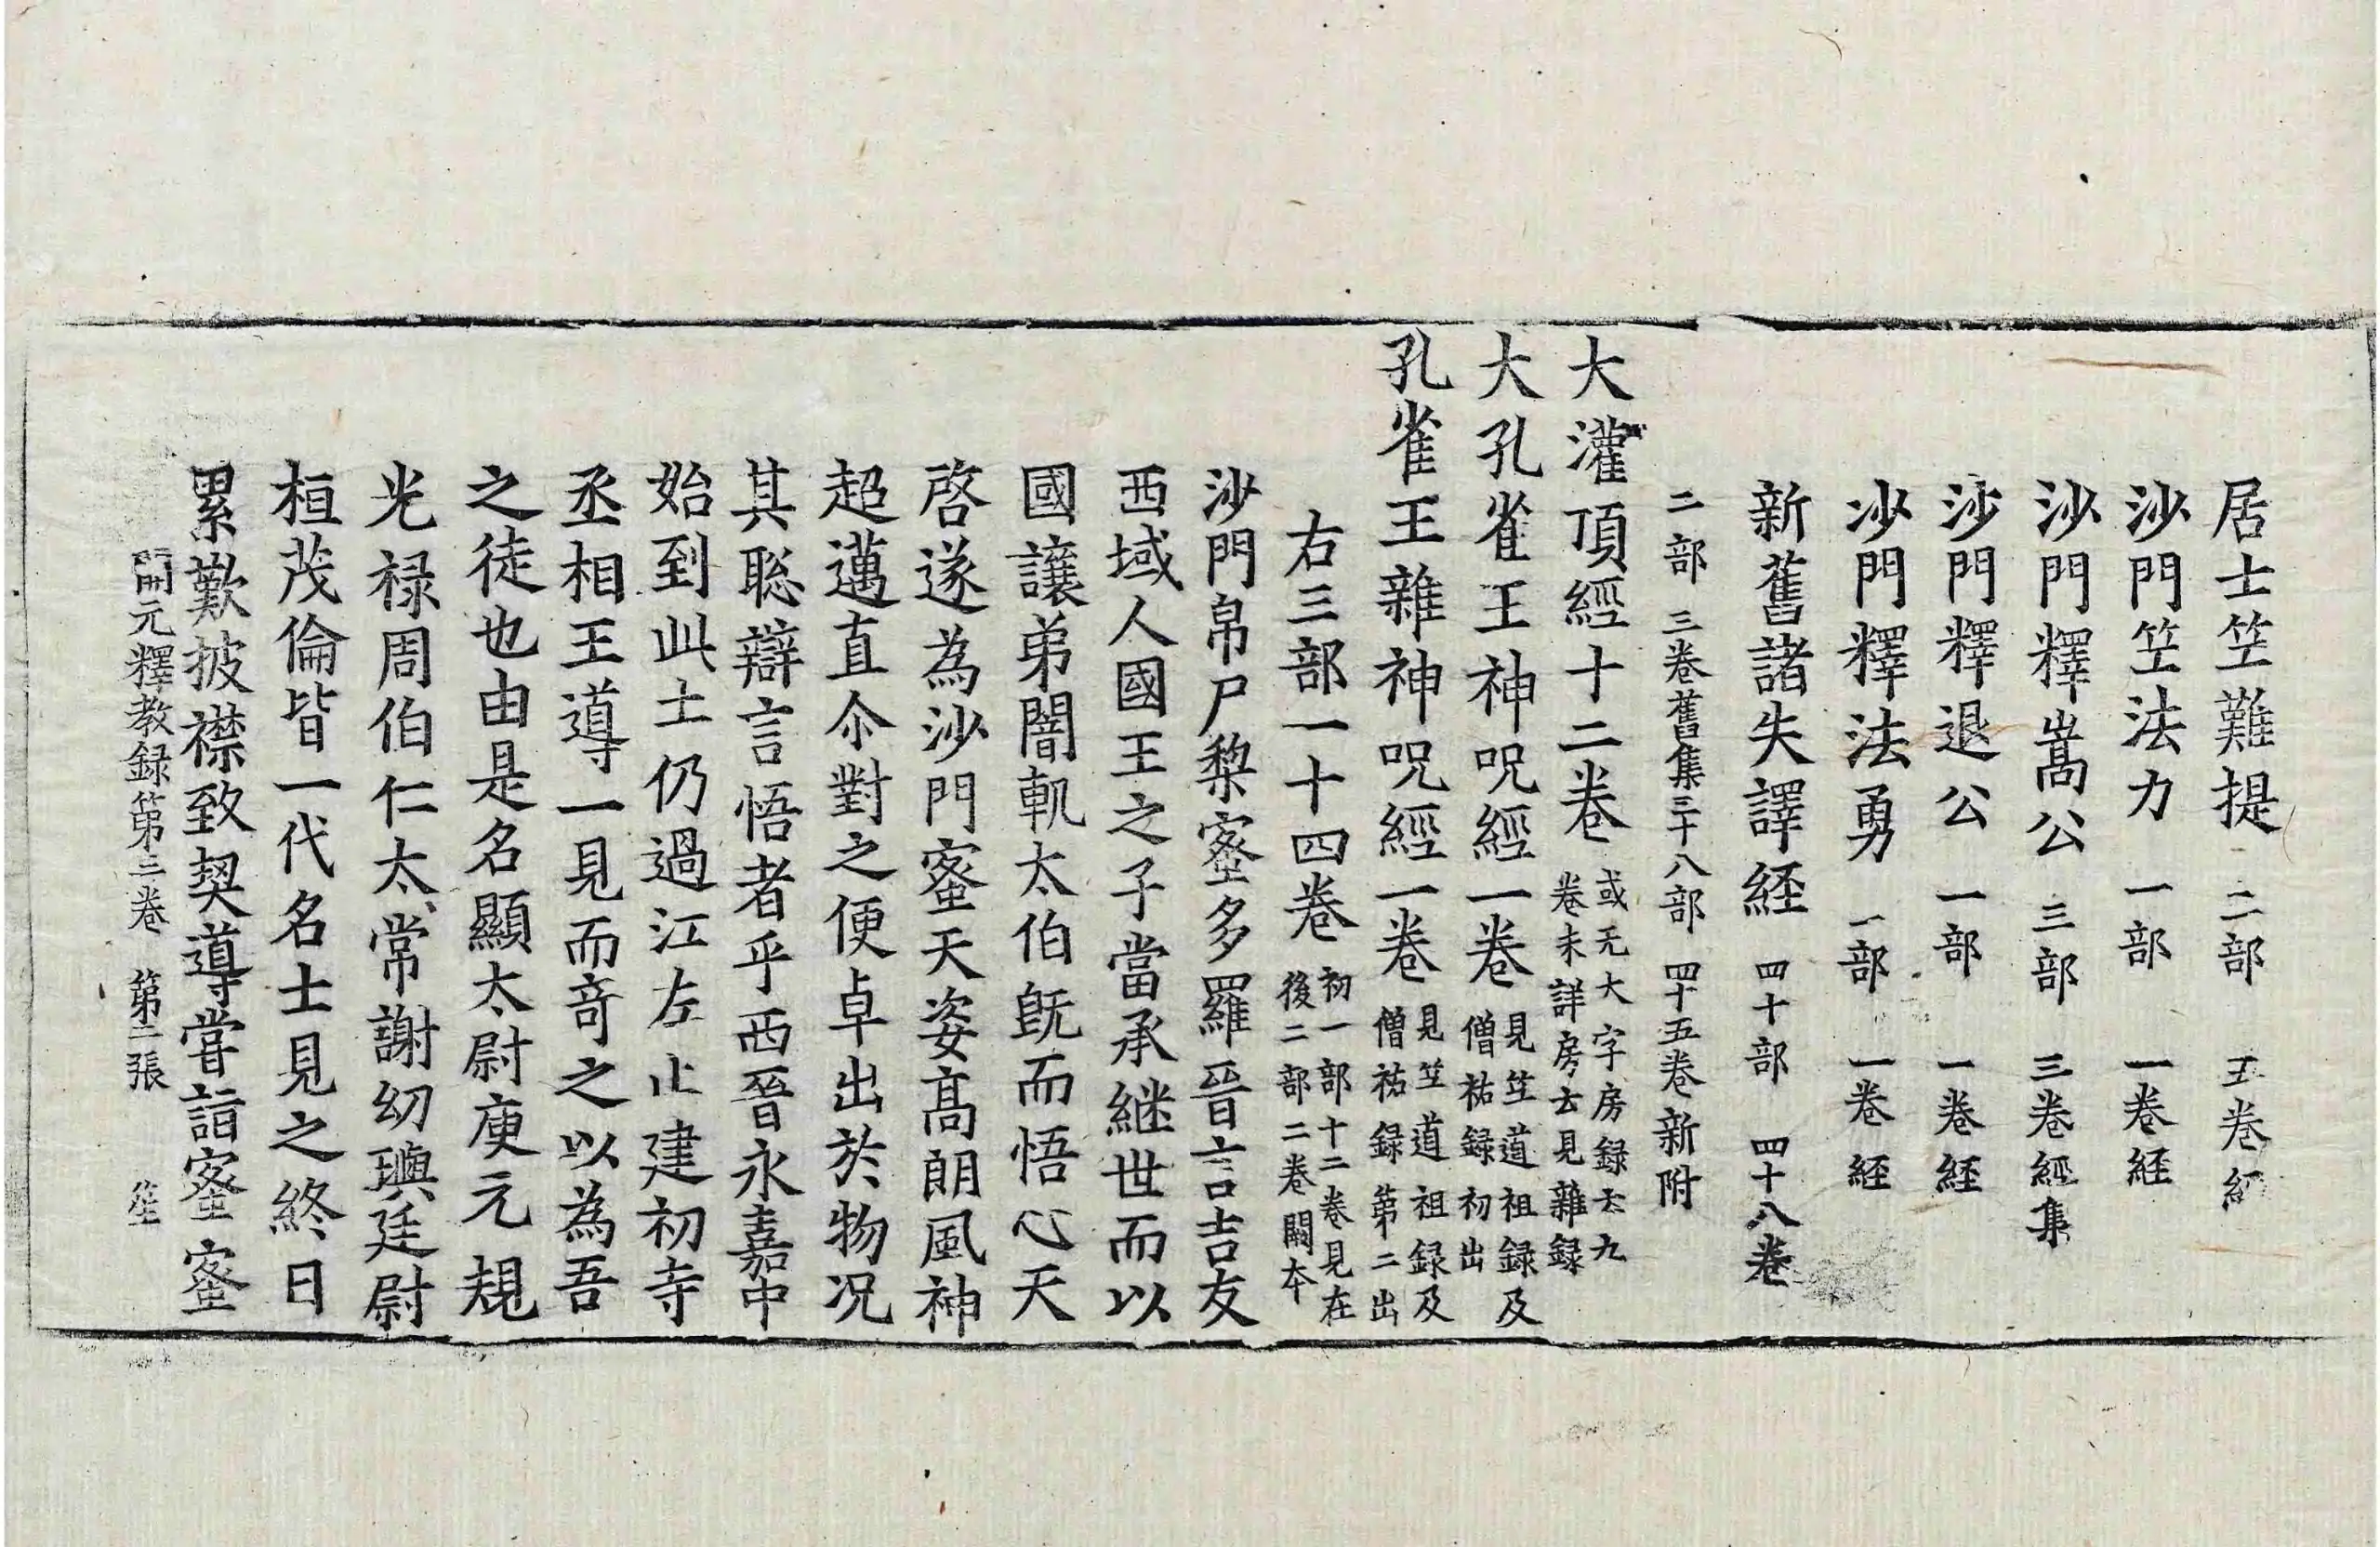 居士笁難提 二部 五卷經
沙門笁法力 一部 一卷経
沙門釋嵩公 三部 三卷經集
沙門釋退公 一部 一卷経
沙門釋法勇 一部 一卷経
新舊諸失譯経 四十部 四十八卷
二部三卷舊集三十八部四十五卷新附
大灌頂經十二卷 或无大字房録云九
卷未詳房云見雜録
大孔雀王神呪經一卷 見笁道祖録及
僧祐録初出
孔雀王雜神呪經一卷 見笁道祖録及
僧祐録第二出
右三部一十四卷 初一部十二卷見在
後二部二卷闕夲
沙門帛尸棃蜜多羅晉言吉友
西域人國王之子當承継世而以
國讓弟闇軌太伯旣而悟心天
啓遂為沙門蜜天姿髙朗風神
超邁直尒對之便卓出於物况
其聡辯言悟者乎西晉永嘉中
始到此土仍過江左止建初寺
丞相王導一見而竒之以為吾
之徒也由是名顯太尉庾元規
光禄周伯仁太常謝幼輿廷尉
桓茂倫皆一代名士見之終日
累歎披襟致契導甞詣蜜蜜
開元釋教録第三卷 第二張 笙